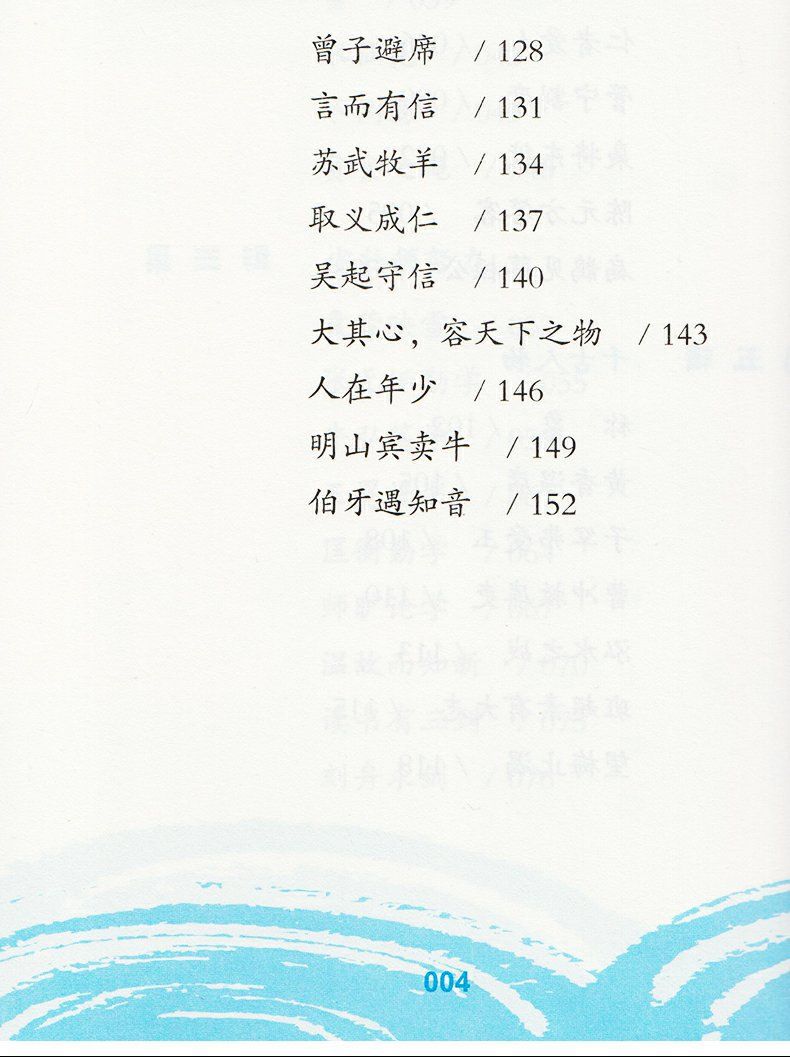 曾子避席 / 128
言而有信 / 131
苏武牧羊 / 134
取义成仁 / 137
吴起守信 / 140
大其心，容天下之物 / 143
人在年少 / 146
明山宾卖牛 / 149
伯牙遇知音 / 152
004